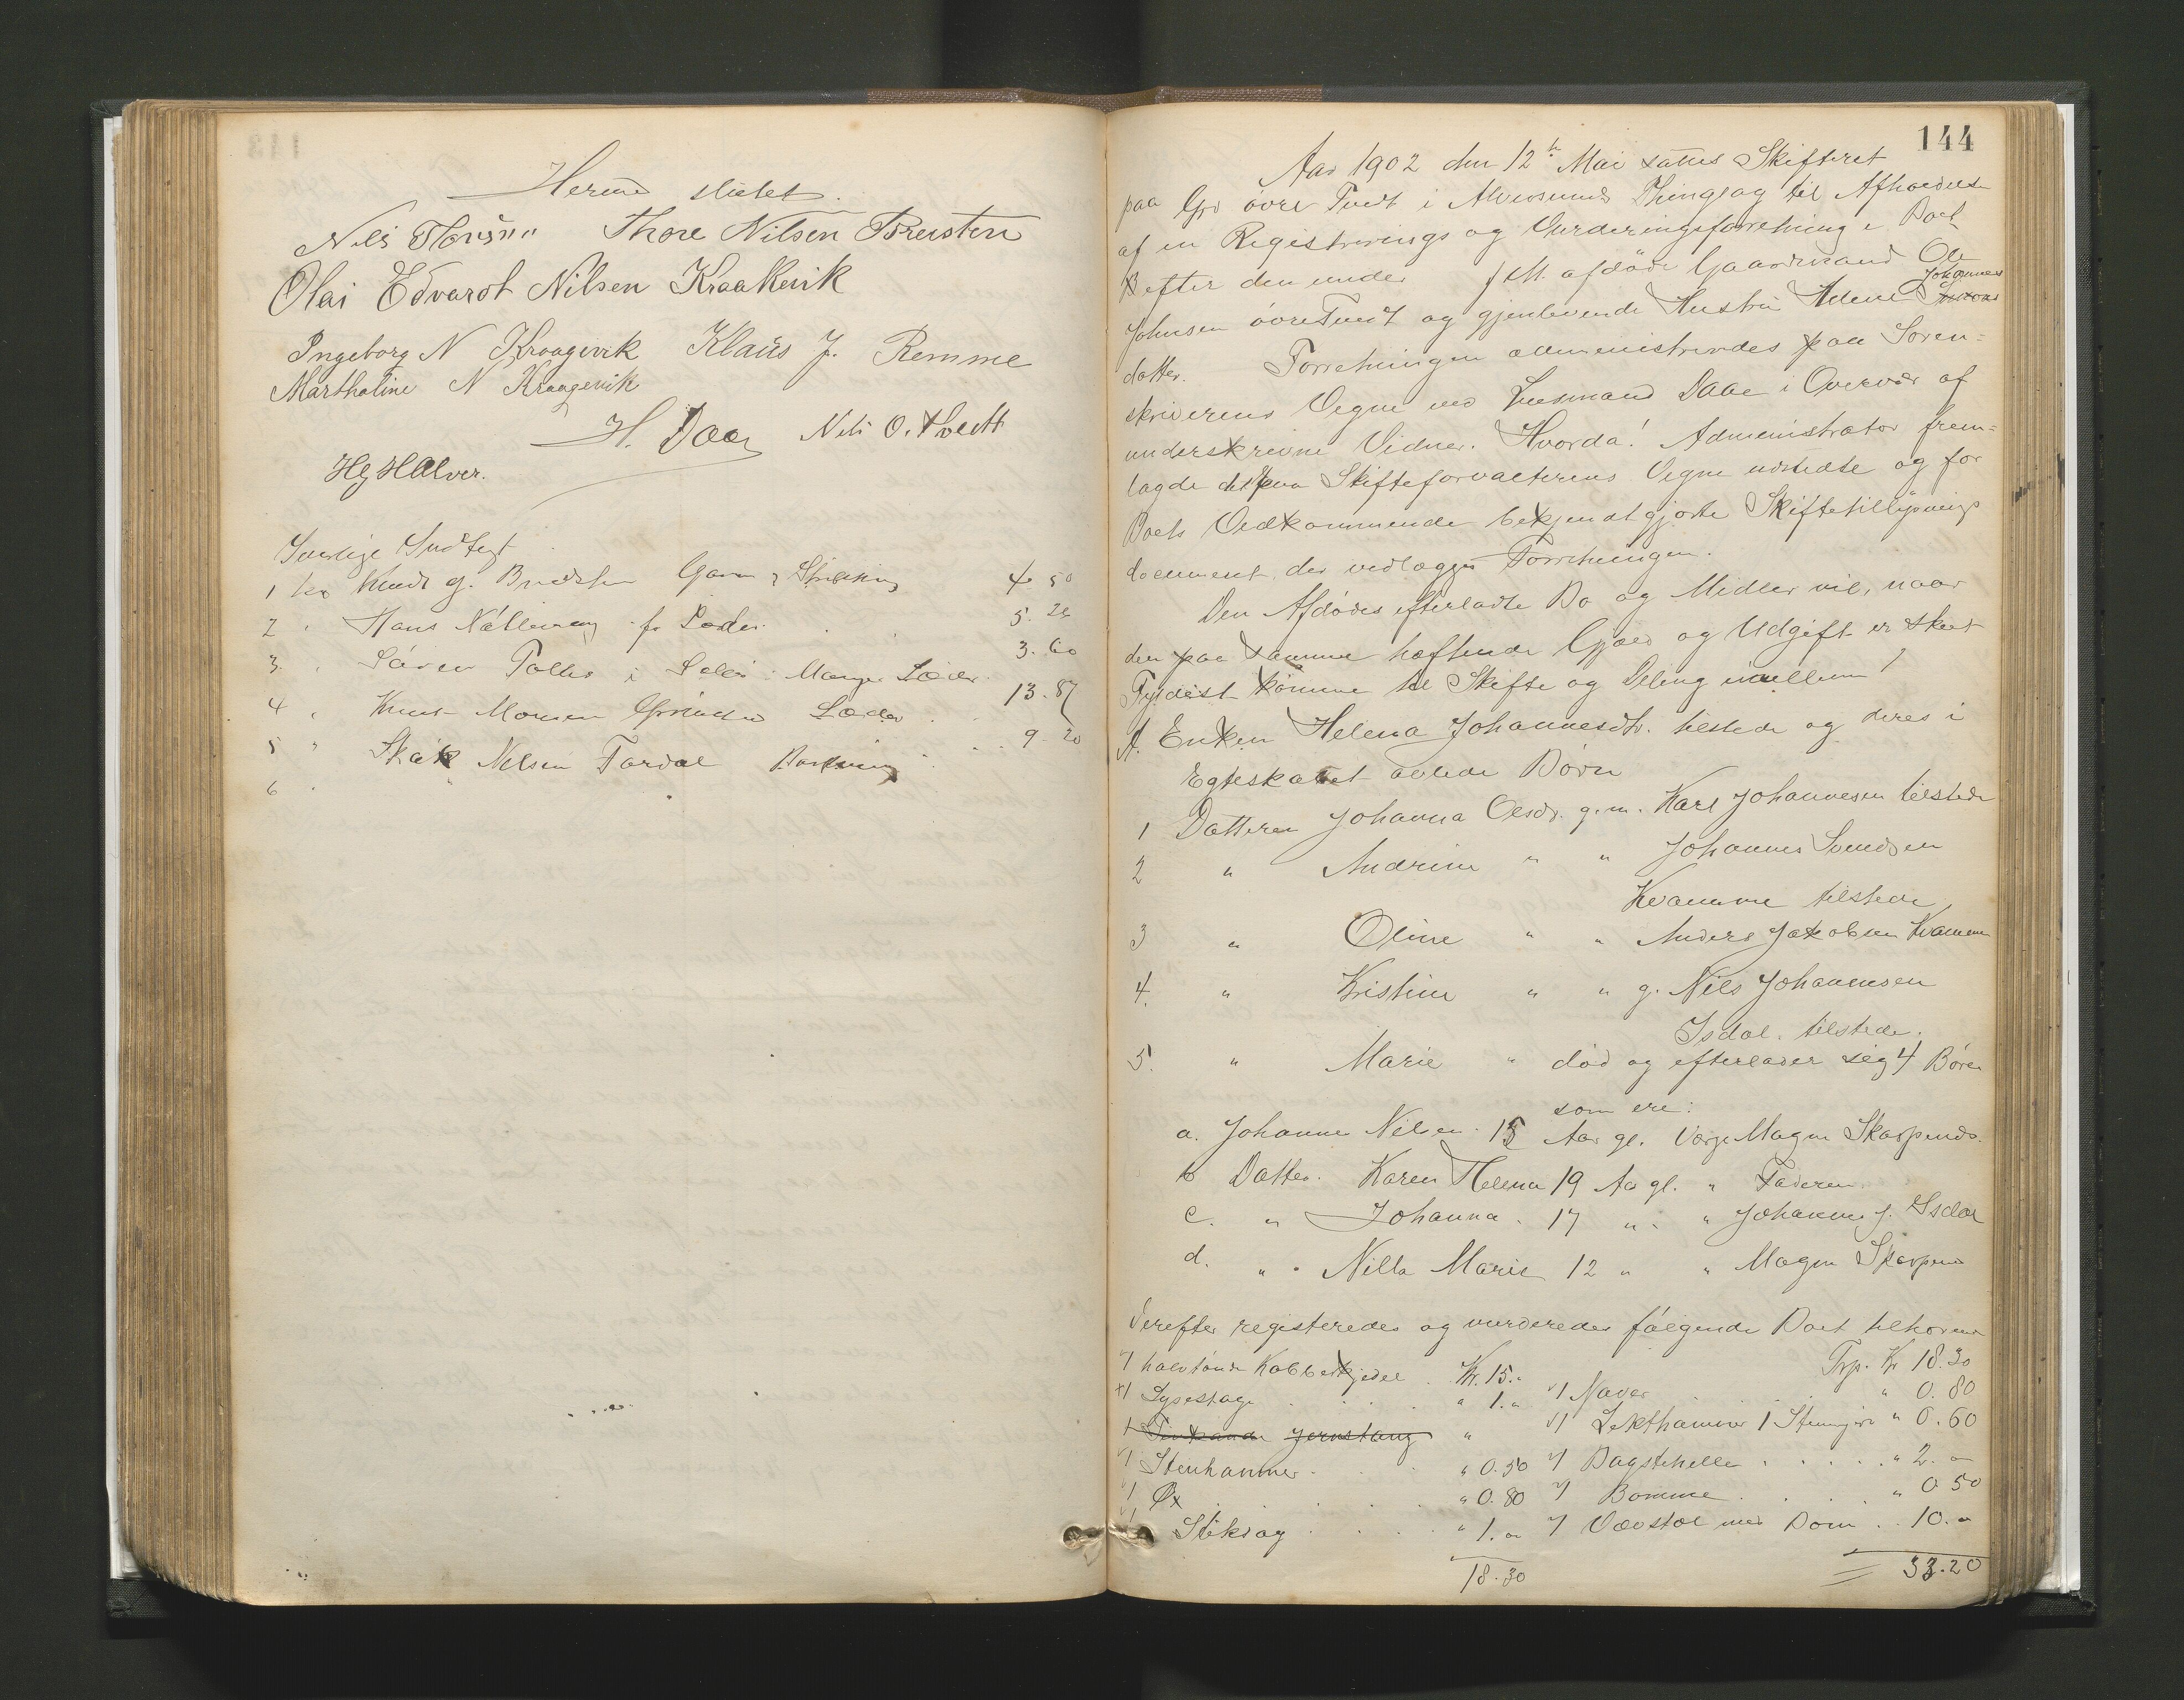 Hermed sluttet.
Nils Monsen Thore Nilsen Breisten
Olai Edvardt Nilsen Kraakevik
Ingeborg N Kraagevik Klaus J. Remme
Marthaline N Kraagevik
H. Daae Nils O. Tvedt
Hg Halver.
1 Fra Knudt G. Garn 4. 50
2 " Hans for Læder 5. 20
3. " i Mange Læder 3. 60
4 " Knut Monsen Læder 13. 87
5 " Nilsen Fardal 9. 20
6 "
144
Aar 1902 den 12te Mai sattes Skifteret
paa Grd øvre Tvedt i Alversunds Thinglag til Afholdelse
af en Registrerings og Vurderingsforretning i Boet
efter den under f. M. afdøde Gaardmand Ole
Johnsen øvre Tvedt og gjenlevende Hustru Johannes
datter. Forretningen administrerdes paa Soren=
skriverens Vegne ved Lensmand Daae i Overvær af
underskrevne Vidner. Hvorda! Administrator frem=
lagde det paa Skifteforvalterens Vegne udstedte og for
Boets Vedkommende bekjendtgjorte Skiftetillysnings
document, der vedlægges Forretningen.
Den Afdødes efterladte Bo og Midler vil, naar
den paa samme hæftende Gjæld og Udgift er skeet
Fyldest komme til Skifte og Deling imellem!
A. Enken Helena Johannesdtr. tilstede og deres i
Egteskabet avlede Børn
1 Datteren Johanna Olsdr. g. m. Karl Johannesen tilstede
2 " Andrine " " Johannes Svendsen
Kvamme tilstede
3 " Oline " " Anders Jakobsen Kvamme
4. " Kristine " " g. Nils Johannesen
Isdal. tilstede.
5. " Marie " død og efterlader sig 4 Børn
som ere:
a. Johanne Nilsen 15 Aar gl. Værge Magne Skarpenes.
b Datter. Karen Helena 19 Aar gl. " Faderen
c. " Johanna. 17 " " Johannes J. Isdal
d. " " Nilla Marie 12 " " Magne Skarpenes
Derefter registeredes og vurderedes følgende Boet tilhørende
1 halvtønde Kobberkjedel. Kr. 15." Trp. Kr 18.30
1 Lysestage " 1." 1 Naver " 0. 80
1 Jernstang " 1 Lekthammer 1 " 0. 60
1 Stenhammer " 0.50 1 Bagstehelle " 2. "
1 Øx " 0.80 1 Bomme " 0 50
1 Stiksag " 1. " 1 Vævstol med Bom 10. "
18.30 = 33.20